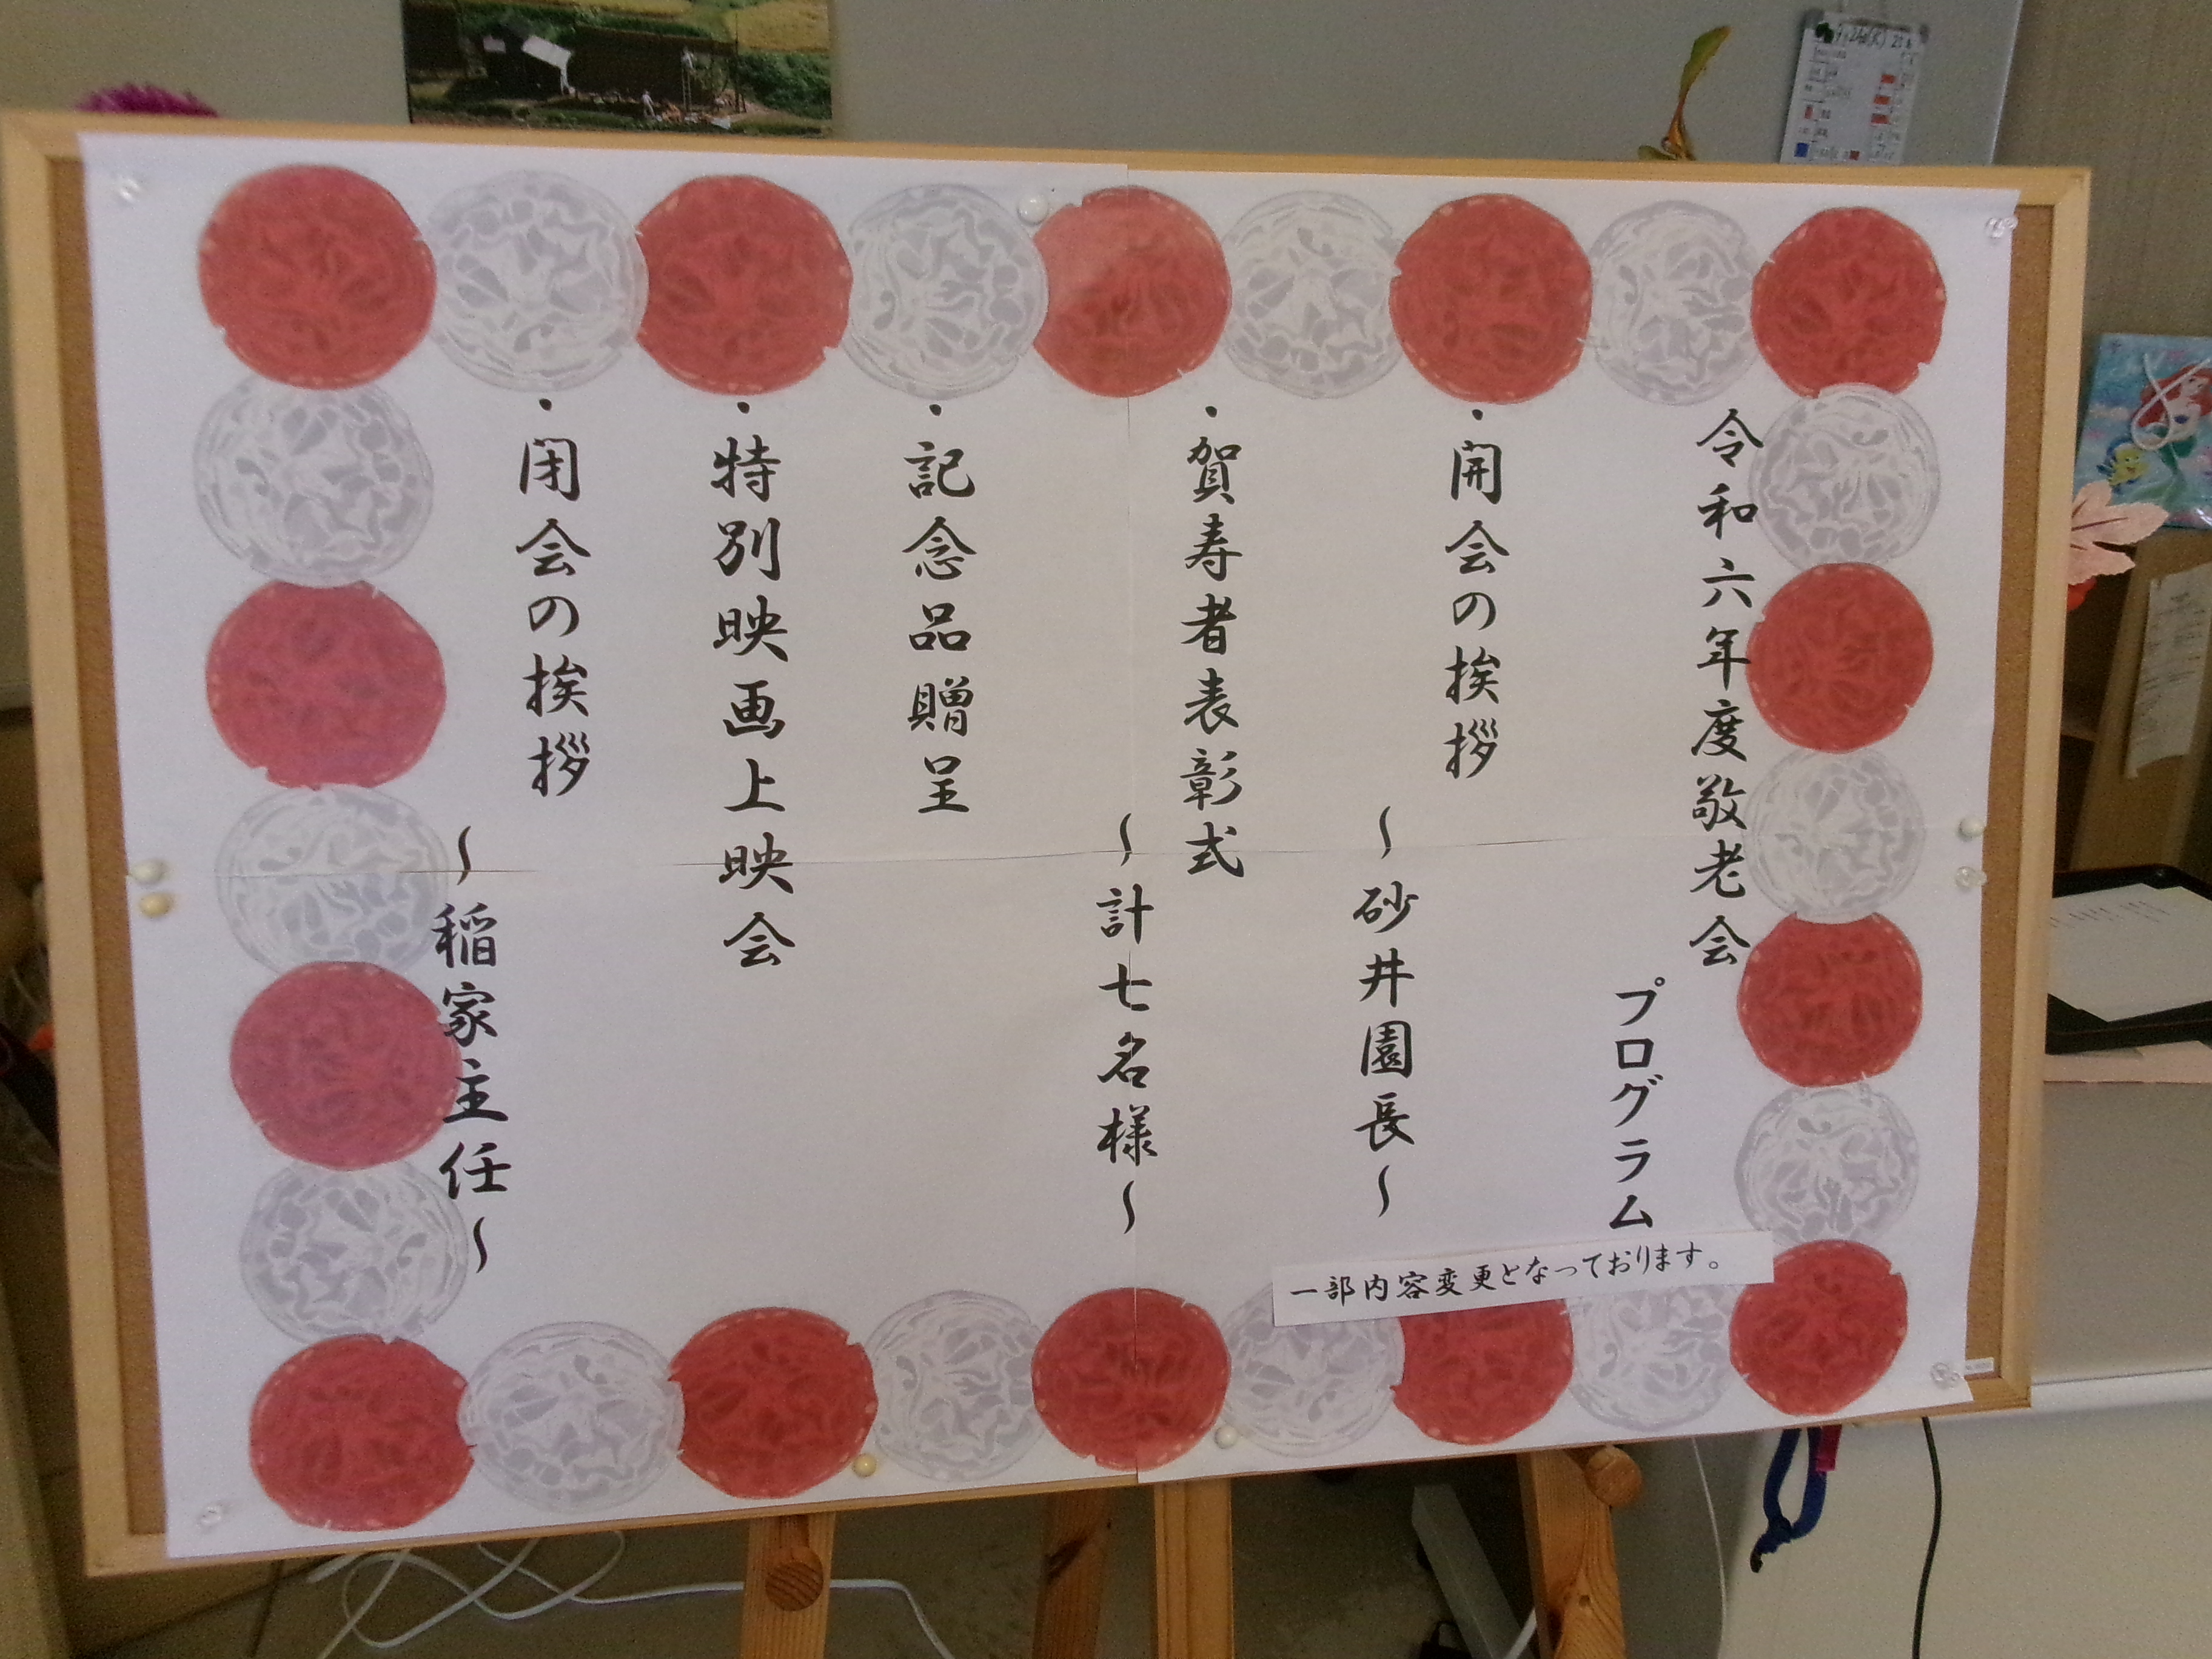 令和六年度敬老会
プログラム
・開会の挨拶
～砂井園長～
・賀寿者表彰式
～計七名様～
・記念品贈呈
・特別映画上映会
・閉会の挨拶
～稲家主任～
一部内容変更となっております。